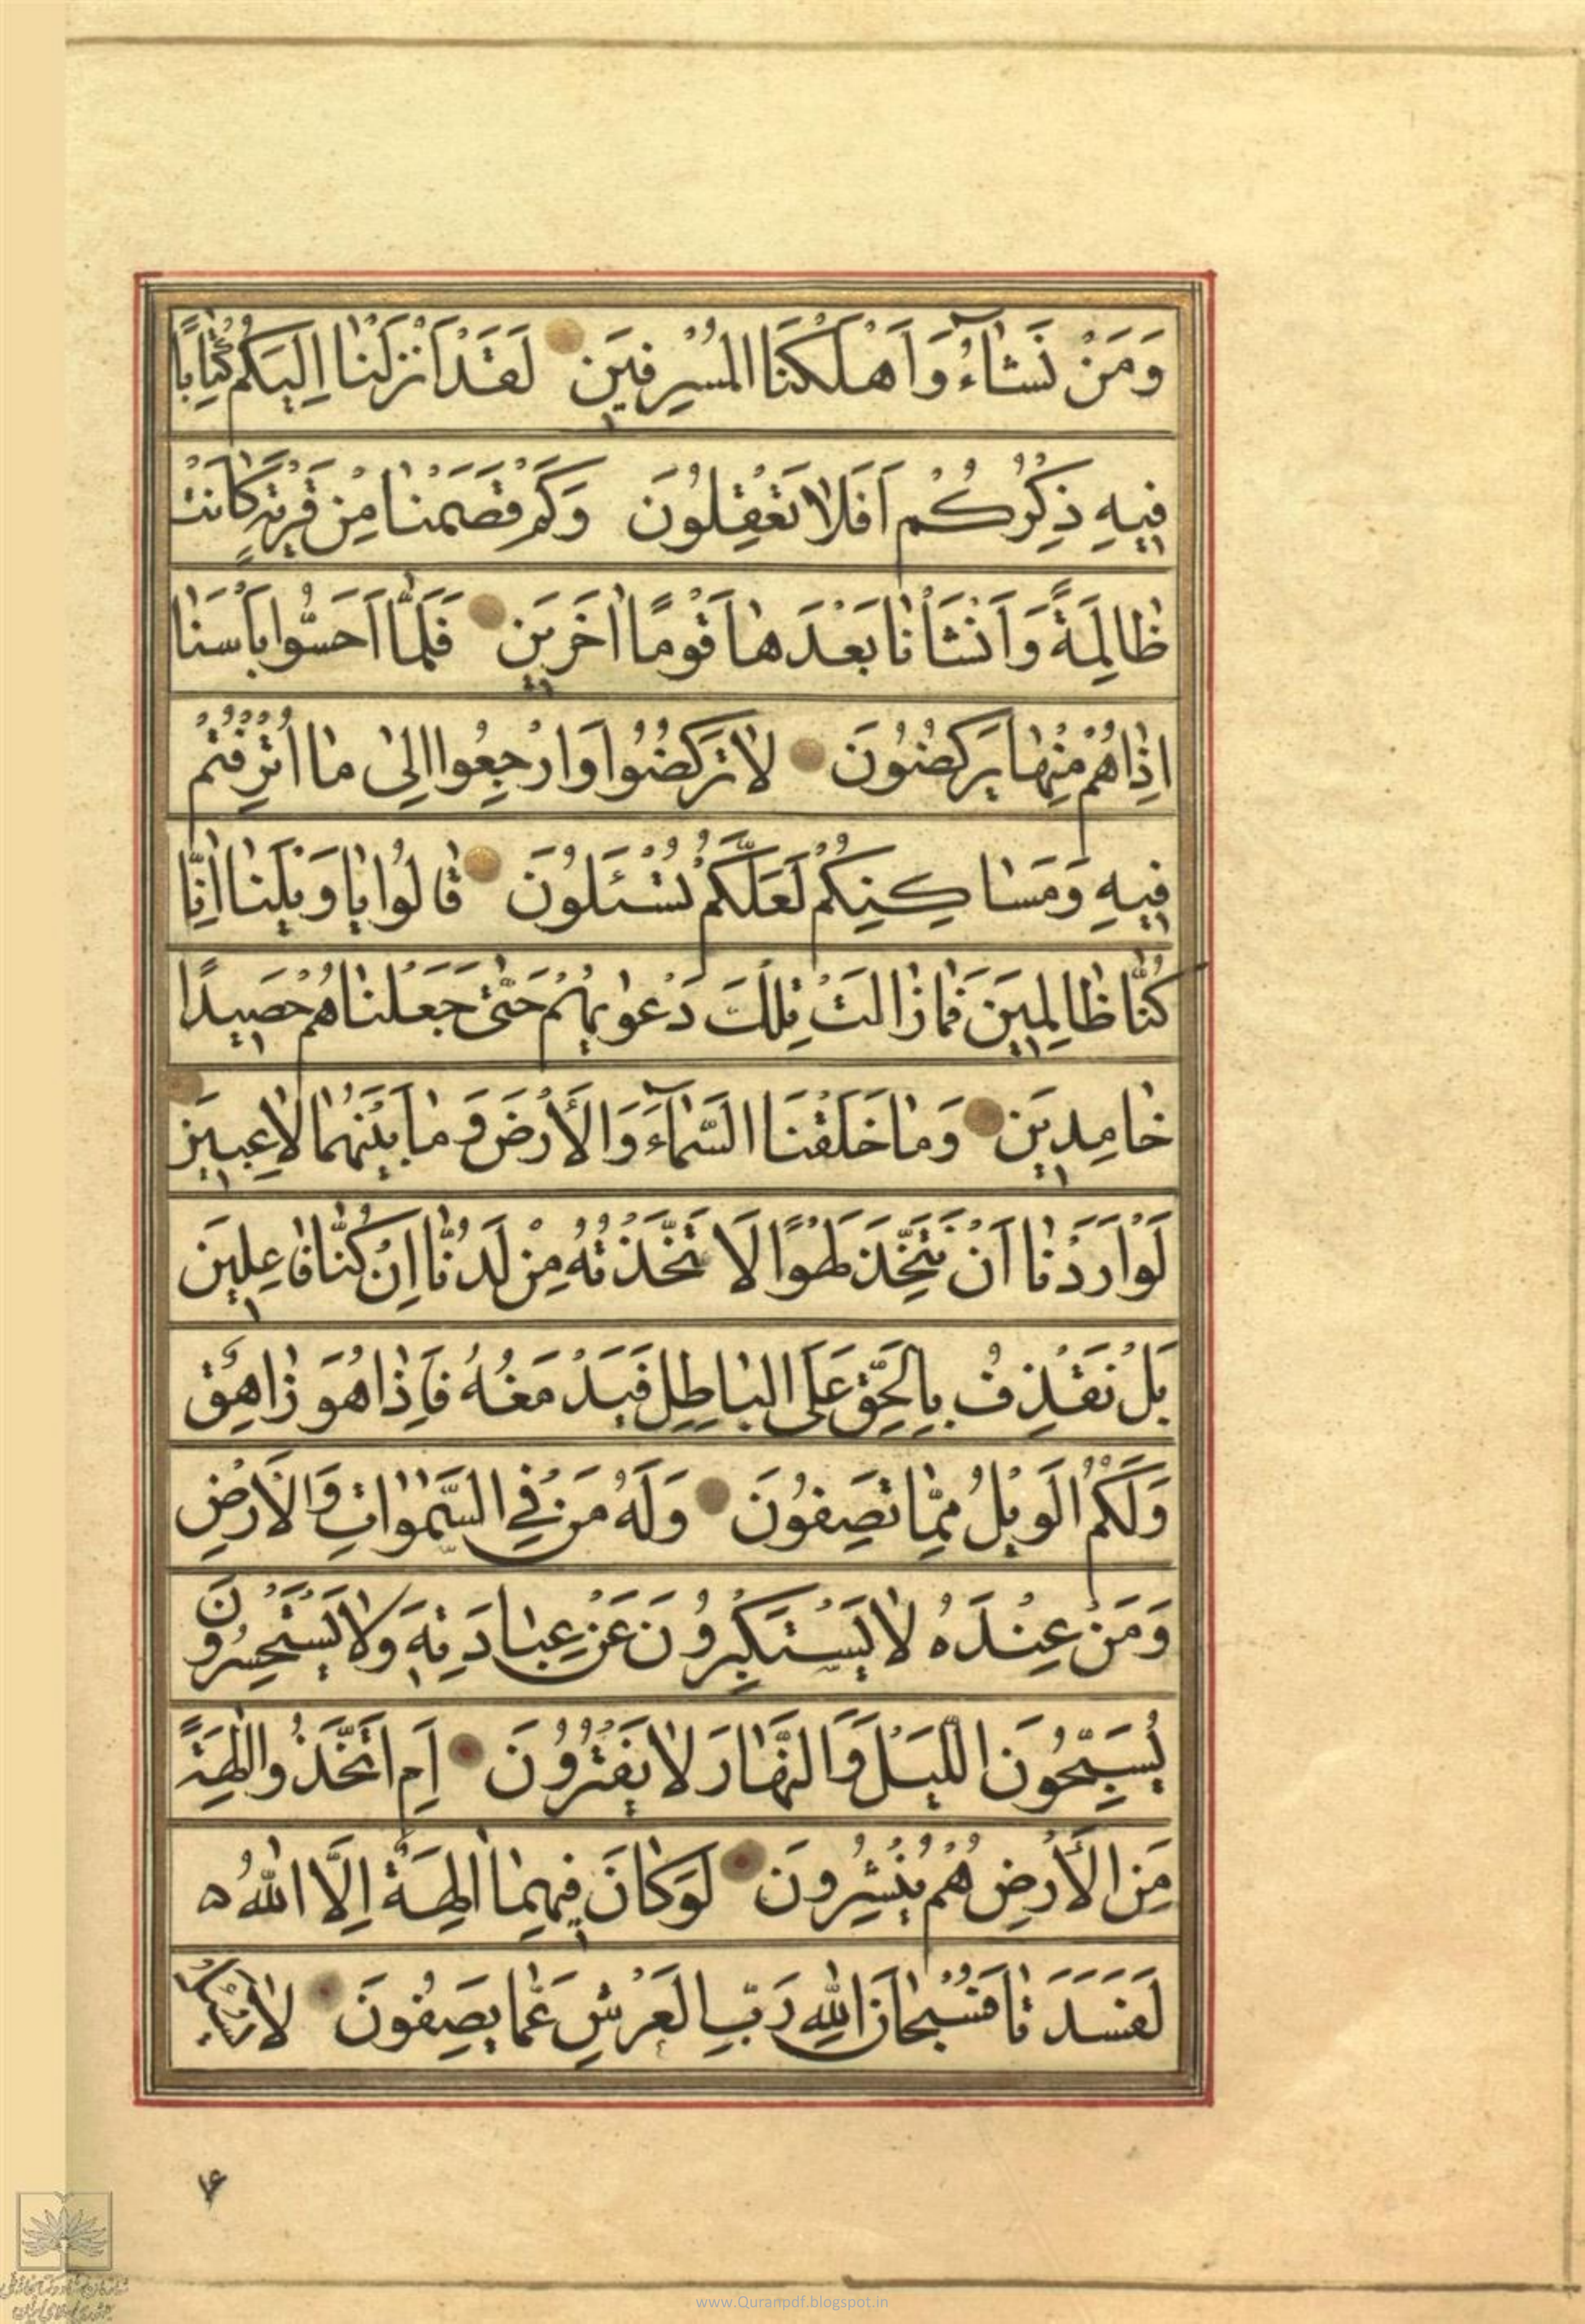 وَمَنْ نَشَاءُ وَاَهْلَكْنَا الْمُسْرِفِينَ لَقَدْ اَنْزَلْنَا اِلَيْكُمْ كِتَابًا
فِيهِ ذِكْرُكُمْ اَفَلَا تَعْقِلُونَ وَكَمْ قَصَمْنَا مِنْ قَرْيَةٍ كَانَتْ
ظَالِمَةً وَاَنْشَأْنَا بَعْدَهَا قَوْمًا اٰخَرِينَ فَلَمَّا اَحَسُّوا بَأْسَنَا
اِذَا هُمْ مِنْهَا يَرْكُضُونَ لَا تَرْكُضُوا وَارْجِعُوا اِلٰى مَا اُتْرِفْتُمْ
فِيهِ وَمَسَاكِنِكُمْ لَعَلَّكُمْ تُسْـَٔلُونَ قَالُوا يَا وَيْلَنَا اِنَّا
كُنَّا ظَالِمِينَ فَمَا زَالَتْ تِلْكَ دَعْوٰيهُمْ حَتّٰى جَعَلْنَاهُمْ حَصِيدًا
خَامِدِينَ وَمَا خَلَقْنَا السَّمَآءَ وَالْأَرْضَ وَمَا بَيْنَهُمَا لَاعِبِينَ
لَوْ اَرَدْنَا اَنْ نَتَّخِذَ لَهْوًا لَاتَّخَذْنٰهُ مِنْ لَدُنَّا اِنْ كُنَّا فَاعِلِينَ
بَلْ نَقْذِفُ بِالْحَقِّ عَلَى الْبَاطِلِ فَيَدْمَغُهُ فَاِذَا هُوَ زَاهِقٌ
وَلَكُمُ الْوَيْلُ مِمَّا تَصِفُونَ وَلَهُ مَنْ فِي السَّمٰوَاتِ وَالْاَرْضِ
وَمَنْ عِنْدَهُ لَا يَسْتَكْبِرُونَ عَنْ عِبَادَتِهِ وَلَا يَسْتَحْسِرُونَ
يُسَبِّحُونَ اللَّيْلَ وَالنَّهَارَ لَا يَفْتُرُونَ اَمِ اتَّخَذُوا اٰلِهَةً
مِنَ الْأَرْضِ هُمْ يُنْشِرُونَ لَوْ كَانَ فِيهِمَا اٰلِهَةٌ اِلَّا اللّٰهُ
لَفَسَدَتَا فَسُبْحَانَ اللّٰهِ رَبِّ الْعَرْشِ عَمَّا يَصِفُونَ لَا يُسْئَلُ
www.Quranpdf.blogspot.in